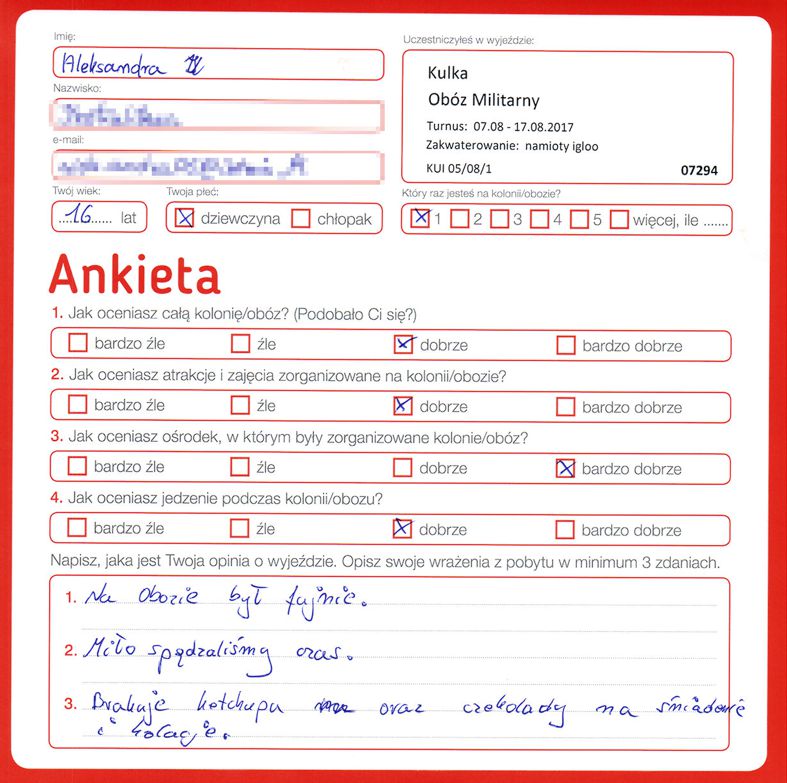 Imię:
Aleksandra
Nazwisko:
e-mail:
Twój wiek:
....16...... lat
Twoja płeć:
dziewczyna chłopak
Uczestniczyłeś w wyjeździe:
Kulka
Obóz Militarny
Turnus: 07.08 - 17.08.2017
Zakwaterowanie: namioty igloo
KUI 05/08/1 07294
Który raz jesteś na kolonii/obozie?
1 2 3 4 5 więcej, ile .......
Ankieta
1. Jak oceniasz całą kolonię/obóz? (Podobało Ci się?)
bardzo źle źle dobrze bardzo dobrze
2. Jak oceniasz atrakcje i zajęcia zorganizowane na kolonii/obozie?
bardzo źle źle dobrze bardzo dobrze
3. Jak oceniasz ośrodek, w którym były zorganizowane kolonie/obóz?
bardzo źle źle dobrze bardzo dobrze
4. Jak oceniasz jedzenie podczas kolonii/obozu?
bardzo źle źle dobrze bardzo dobrze
Napisz, jaka jest Twoja opinia o wyjeździe. Opisz swoje wrażenia z pobytu w minimum 3 zdaniach.
1. Na obozie był fajnie.
2. Miło spędzaliśmy czas.
3. Brakuje ketchupu oraz czekolady na śniadanie
i kolacje.